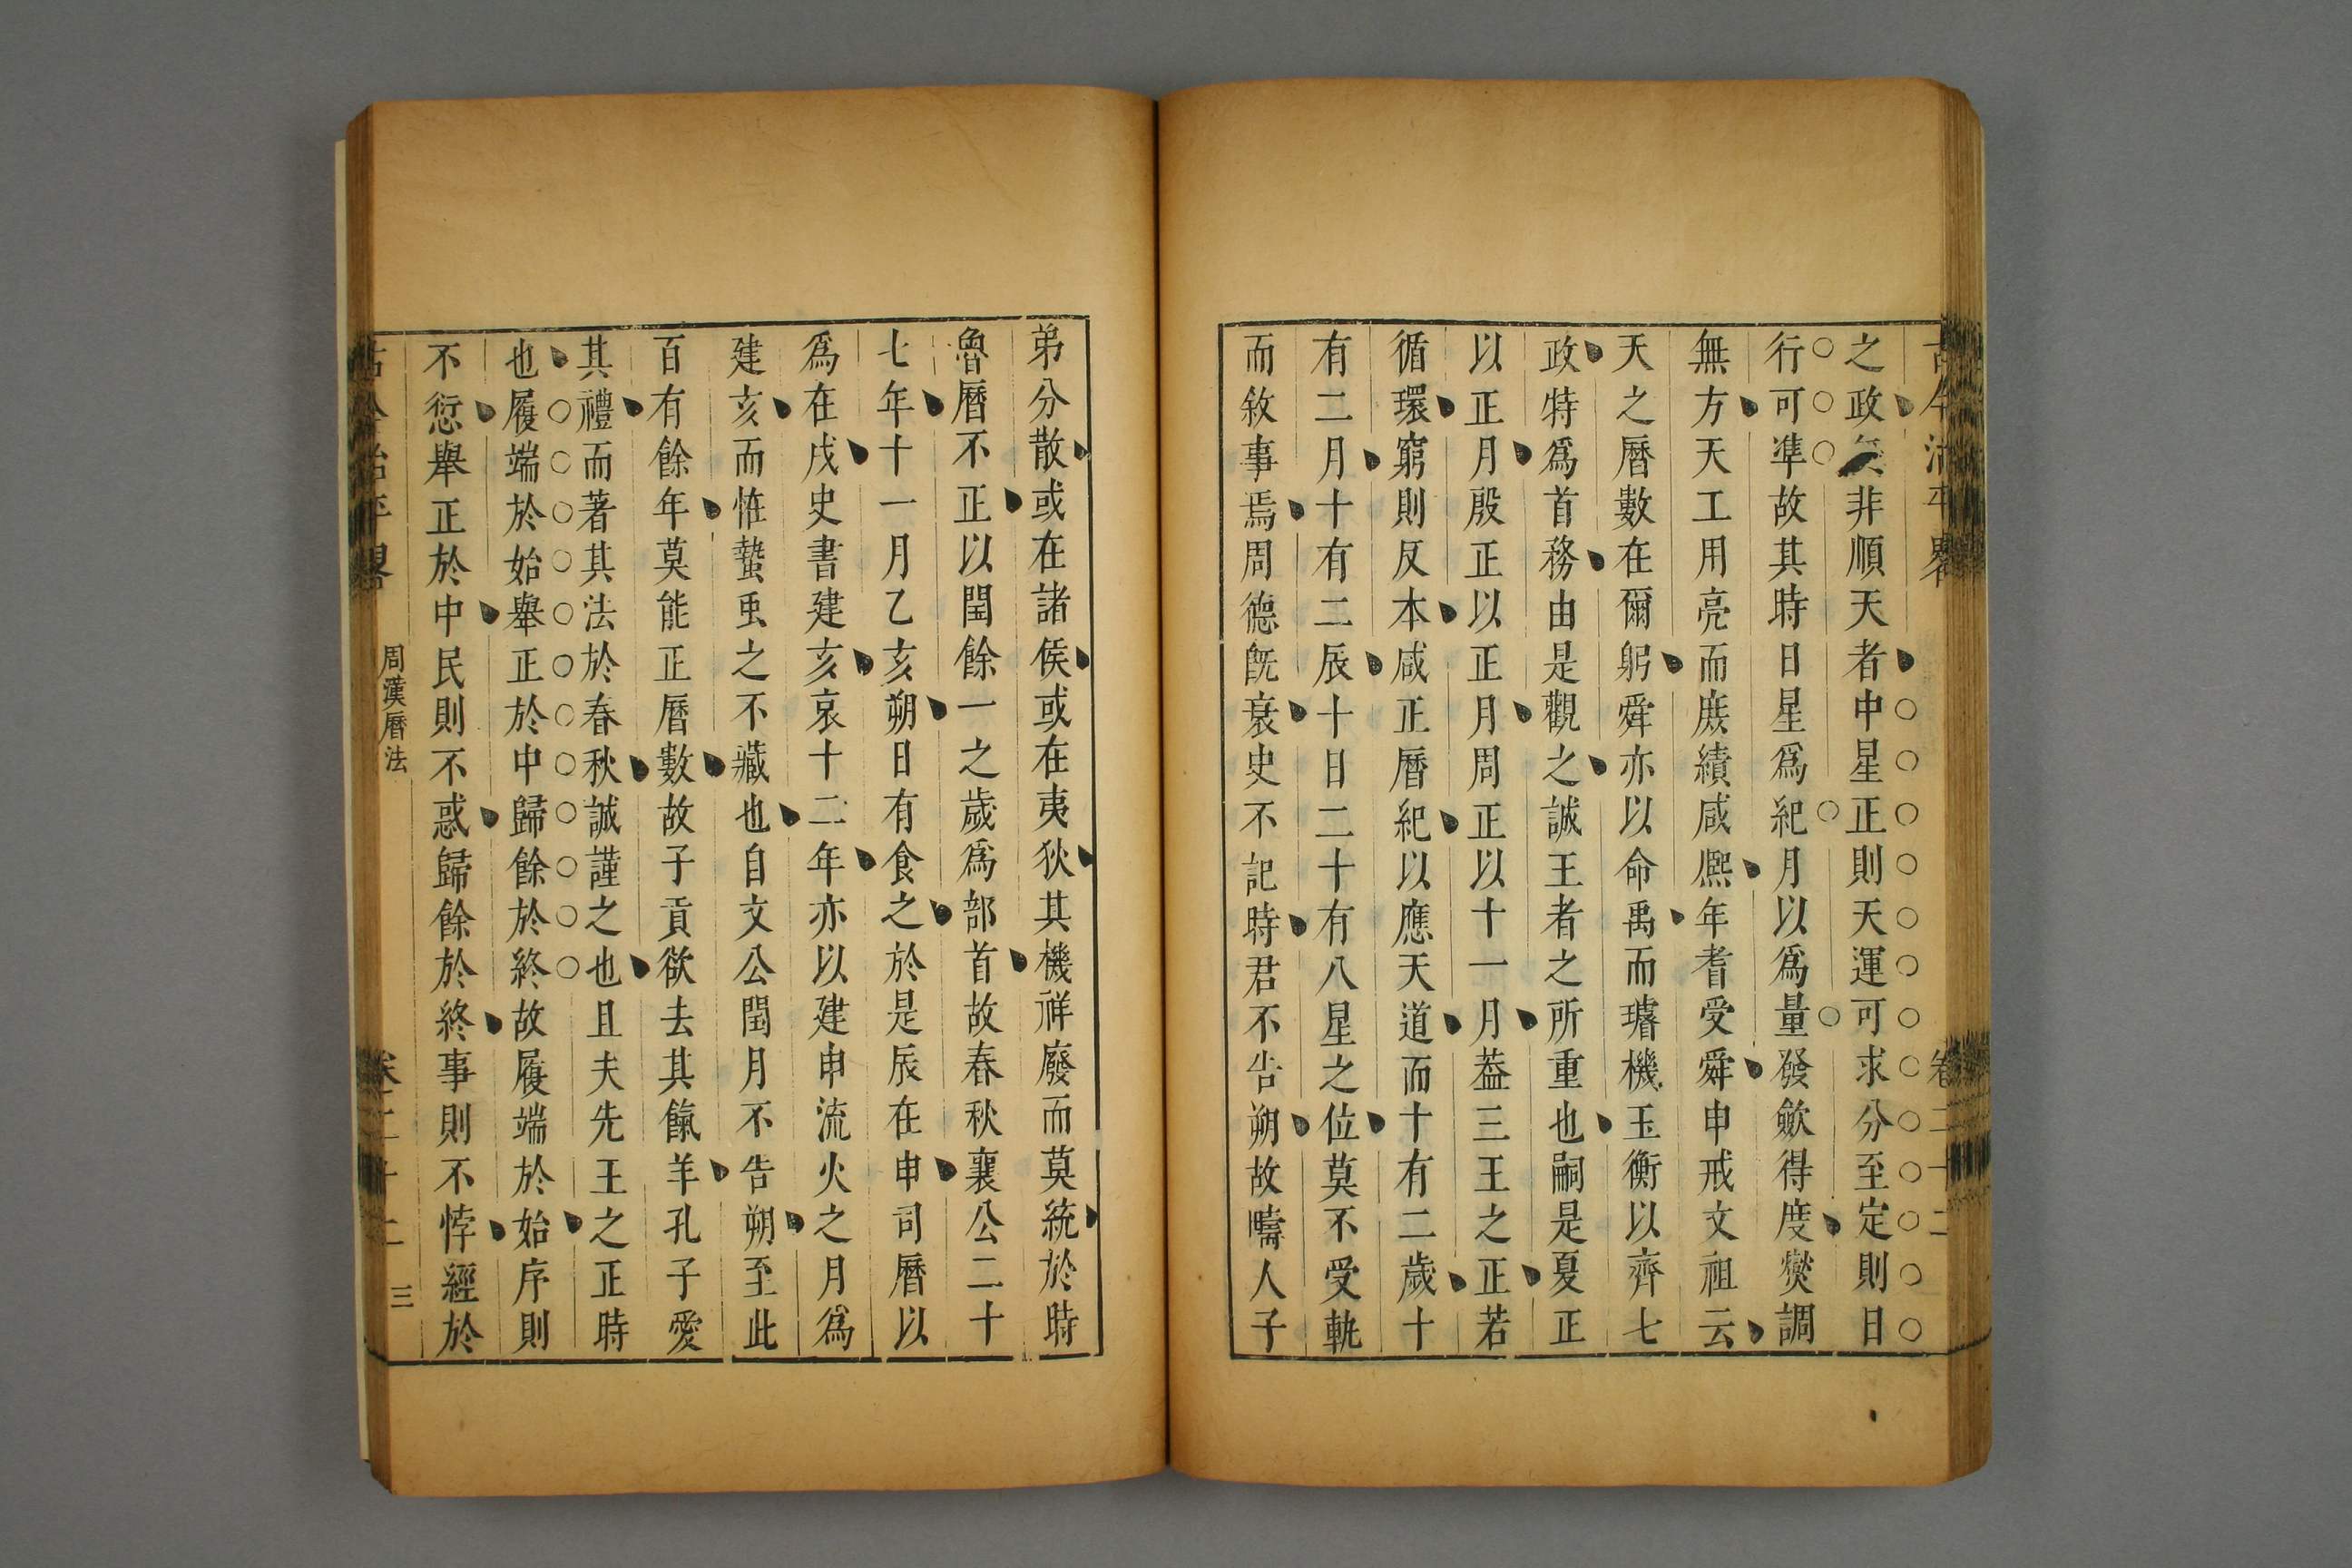 古今治平畧
卷二十二
之政矣非順天者中星正則天運可求分至定則日
行可凖故其時日星爲紀月以爲量發歛得度爕調
無方天工用亮而庶績咸熈年耆受舜申戒文祖云
天之曆數在爾躬舜亦以命禹而璿機玉衡以齊七
政特爲首務由是觀之誠王者之所重也嗣是夏正
以正月殷正以正月周正以十一月葢三王之正若
循環窮則反本咸正曆紀以應天道而十有二歲十
有二月十有二辰十日二十有八星之位莫不受軌
而敘事焉周德旣衰史不記時君不告朔故疇人子
弟分散或在諸侯或在夷狄其機祥廢而莫統於時
魯曆不正以閏餘一之歲爲部首故春秋襄公二十
七年十一月乙亥朔日有食之於是辰在申司曆以
爲在戌史書建亥哀十二年亦以建申流火之月爲
建亥而恠蟄虫之不藏也自文公閏月不告朔至此
百有餘年莫能正曆數故子貢欲去其餼羊孔子愛
其禮而著其法於春秋誠謹之也且夫先王之正時
也履端於始舉正於中歸餘於終故履端於始序則
不愆舉正於中民則不惑歸餘於終事則不悖經於
古今治平畧
周漢曆法
卷二十二
三